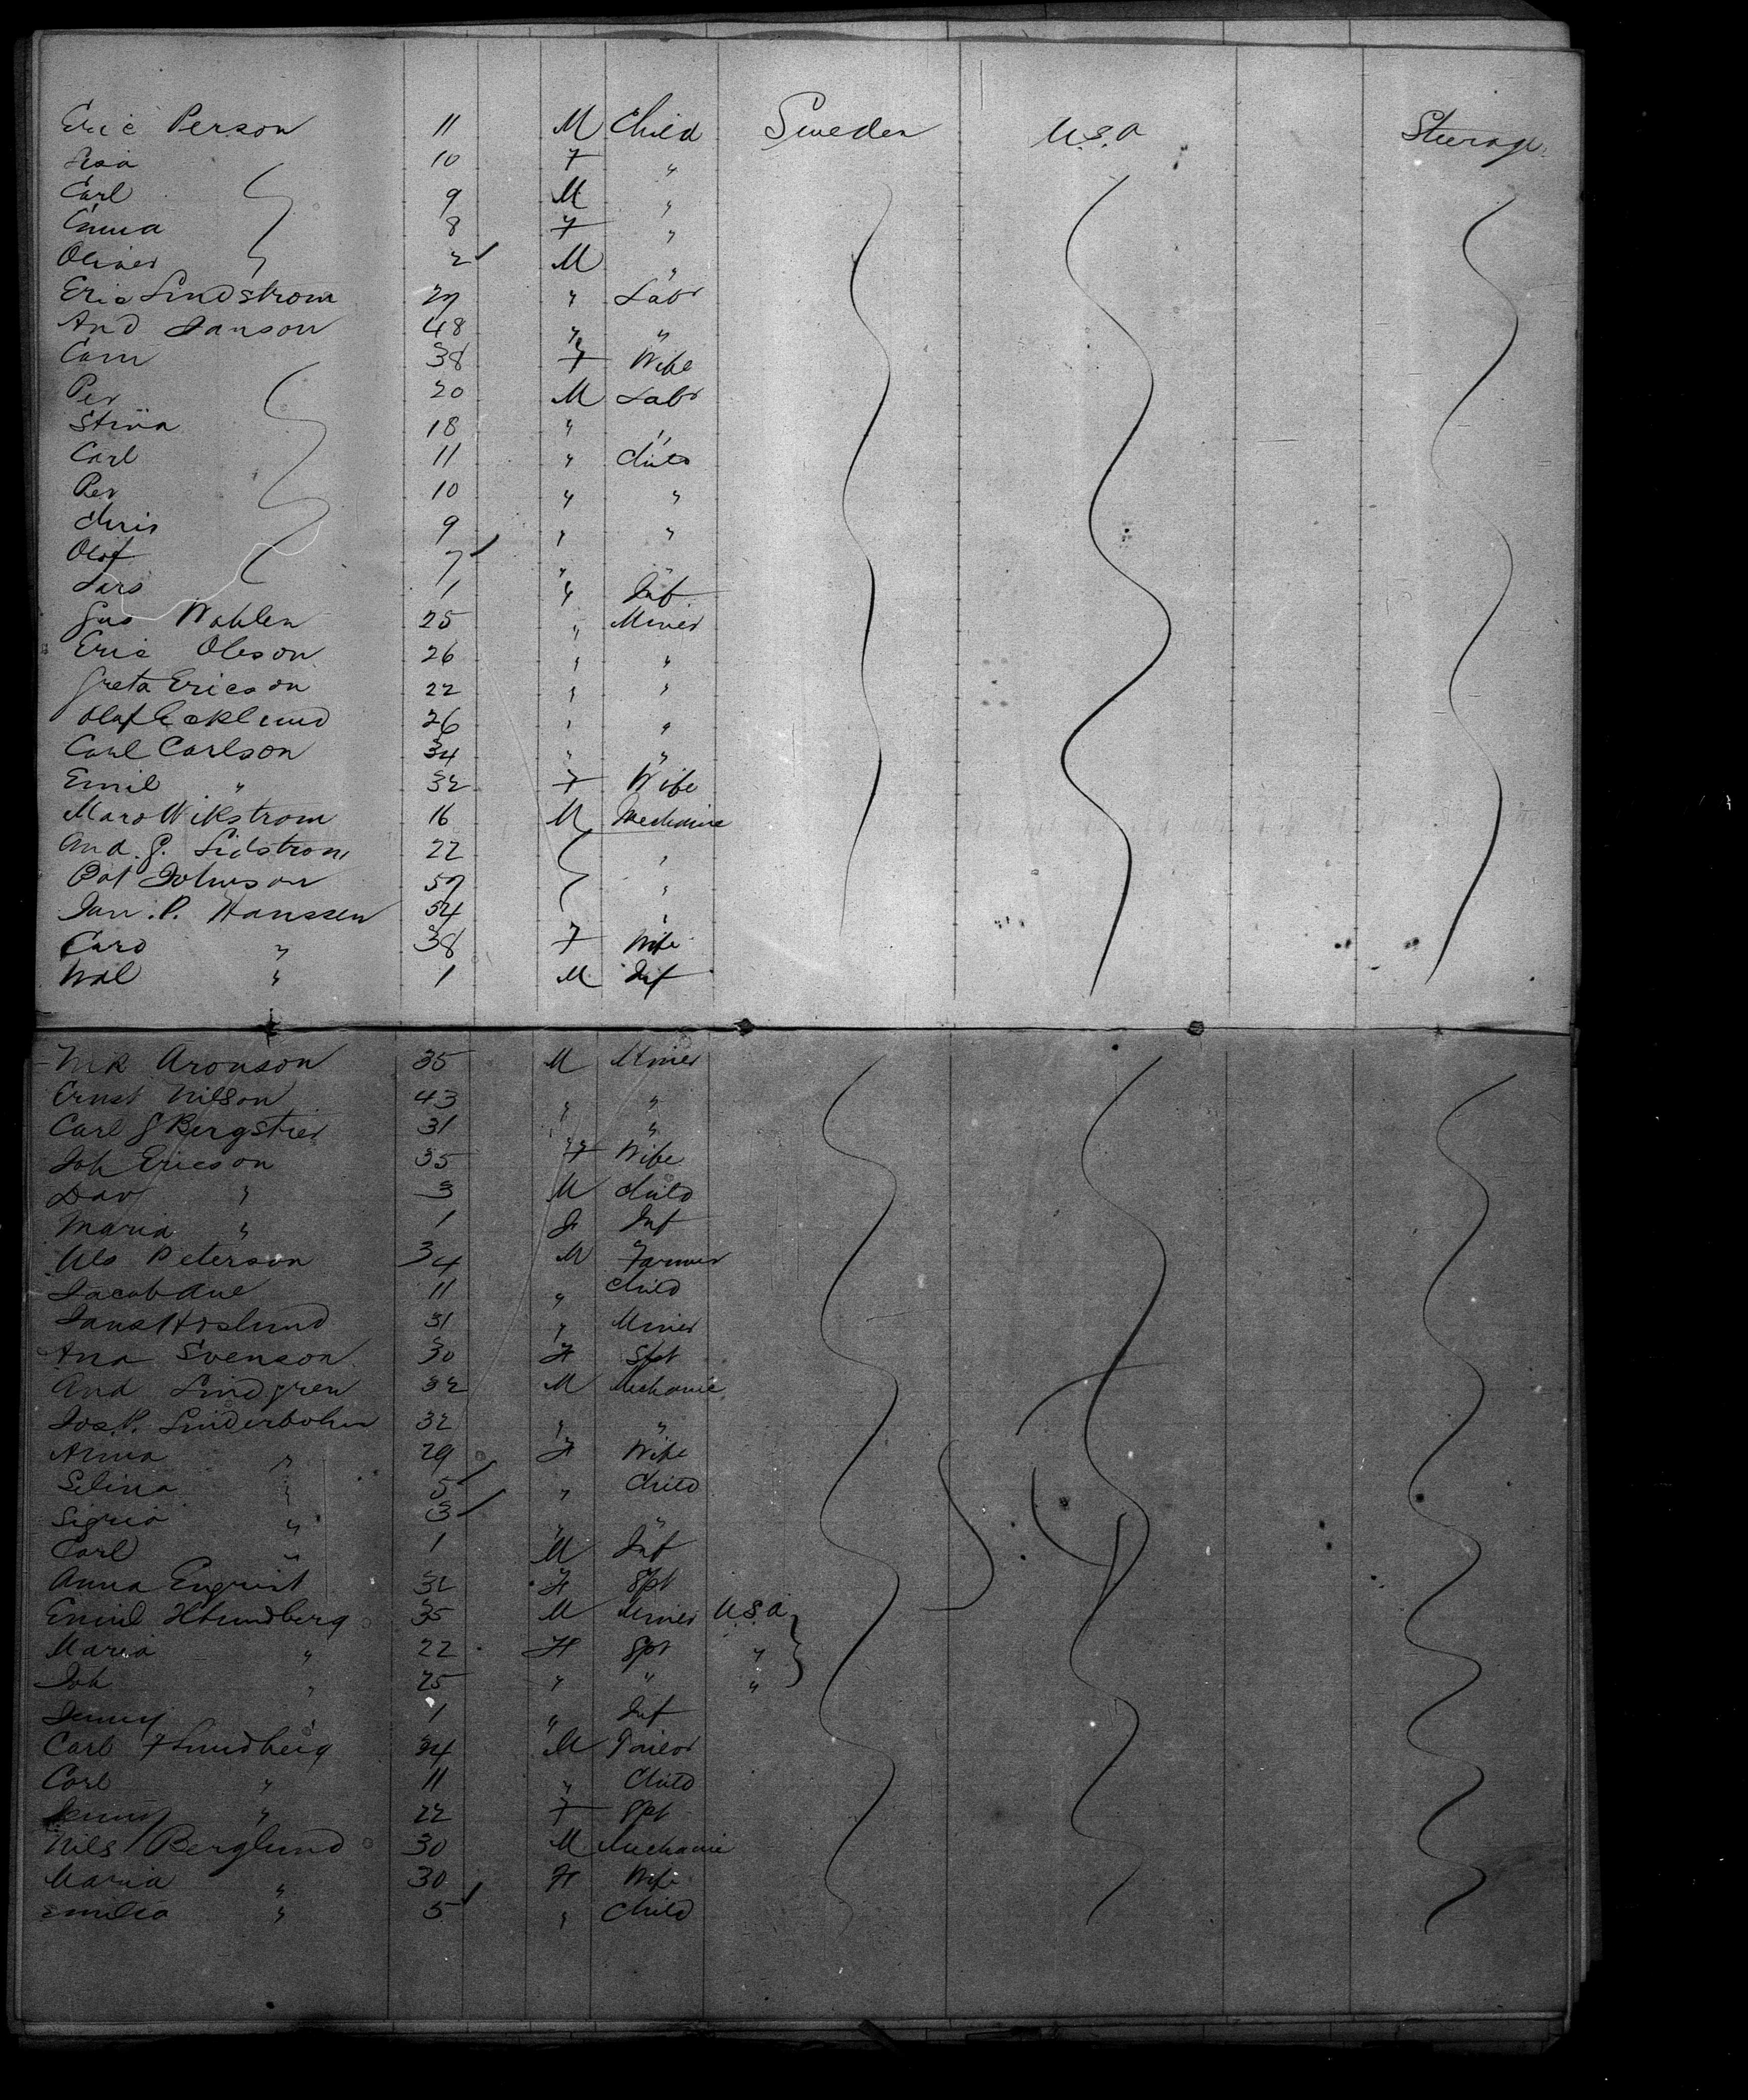 Eric Person 11 M Child Sweden U.S.A Steerage
10 F "
Carl 9 M "
Emma 8 F "
Oliver 2 M "
Eric Lindstrom 27 " Labr
And Janson 48 " "
38 F Wife
Per 20 M Labr
Stina 18 " "
Carl 11 " Child
Per 10 " "
Chris 9 " "
Olof 7 " "
Lars 1 " Inf
Gus Wahlen 25 " Miner
Eric Oleson 26 " "
Greta Ericson 22 " "
OlafEcklund 26 " "
Carl Carlson 34 " "
Emil " 32 F Wife
Wikstrom 16 M Mechanic
And. G. Lidstrom 22 "
Johnson 57 "
Jan. P. Hanssen 54 "
Caro " 38 F Wife
" 1 M Inf
Aronson 35 M Miner
Ernst Nilson 43 " "
Carl G Bergstrer 31 " "
Joh Ericson 35 F Wife
Dav " 3 M Child
Maria " 1 F Inf
Nls Peterson 34 M Farmer
Jacob 11 " Child
31 " Miner
Ana Svenson 30 F Spt
And Lindgren 32 M Mechanic
Jos. P. Linderbohm 32 " "
Anna " 29 F Wife
Selina " 5 " Child
Sigrid " 3 " "
Carl " 1 M Inf
Anna Enqvist 32 F Spt
Emil H Lundberg 35 M Miner U.S.A
Maria " 22 F Spt "
Joh " 25 " " "
Jenny " 1 " Inf
Carl F Lundberg 34 M Tailor
Carl " 11 " Child
Jenny " 22 F Spt
Nils Berglund 30 M Mechanic
Maria " 30 F Wife
Emilia " 5 " Child